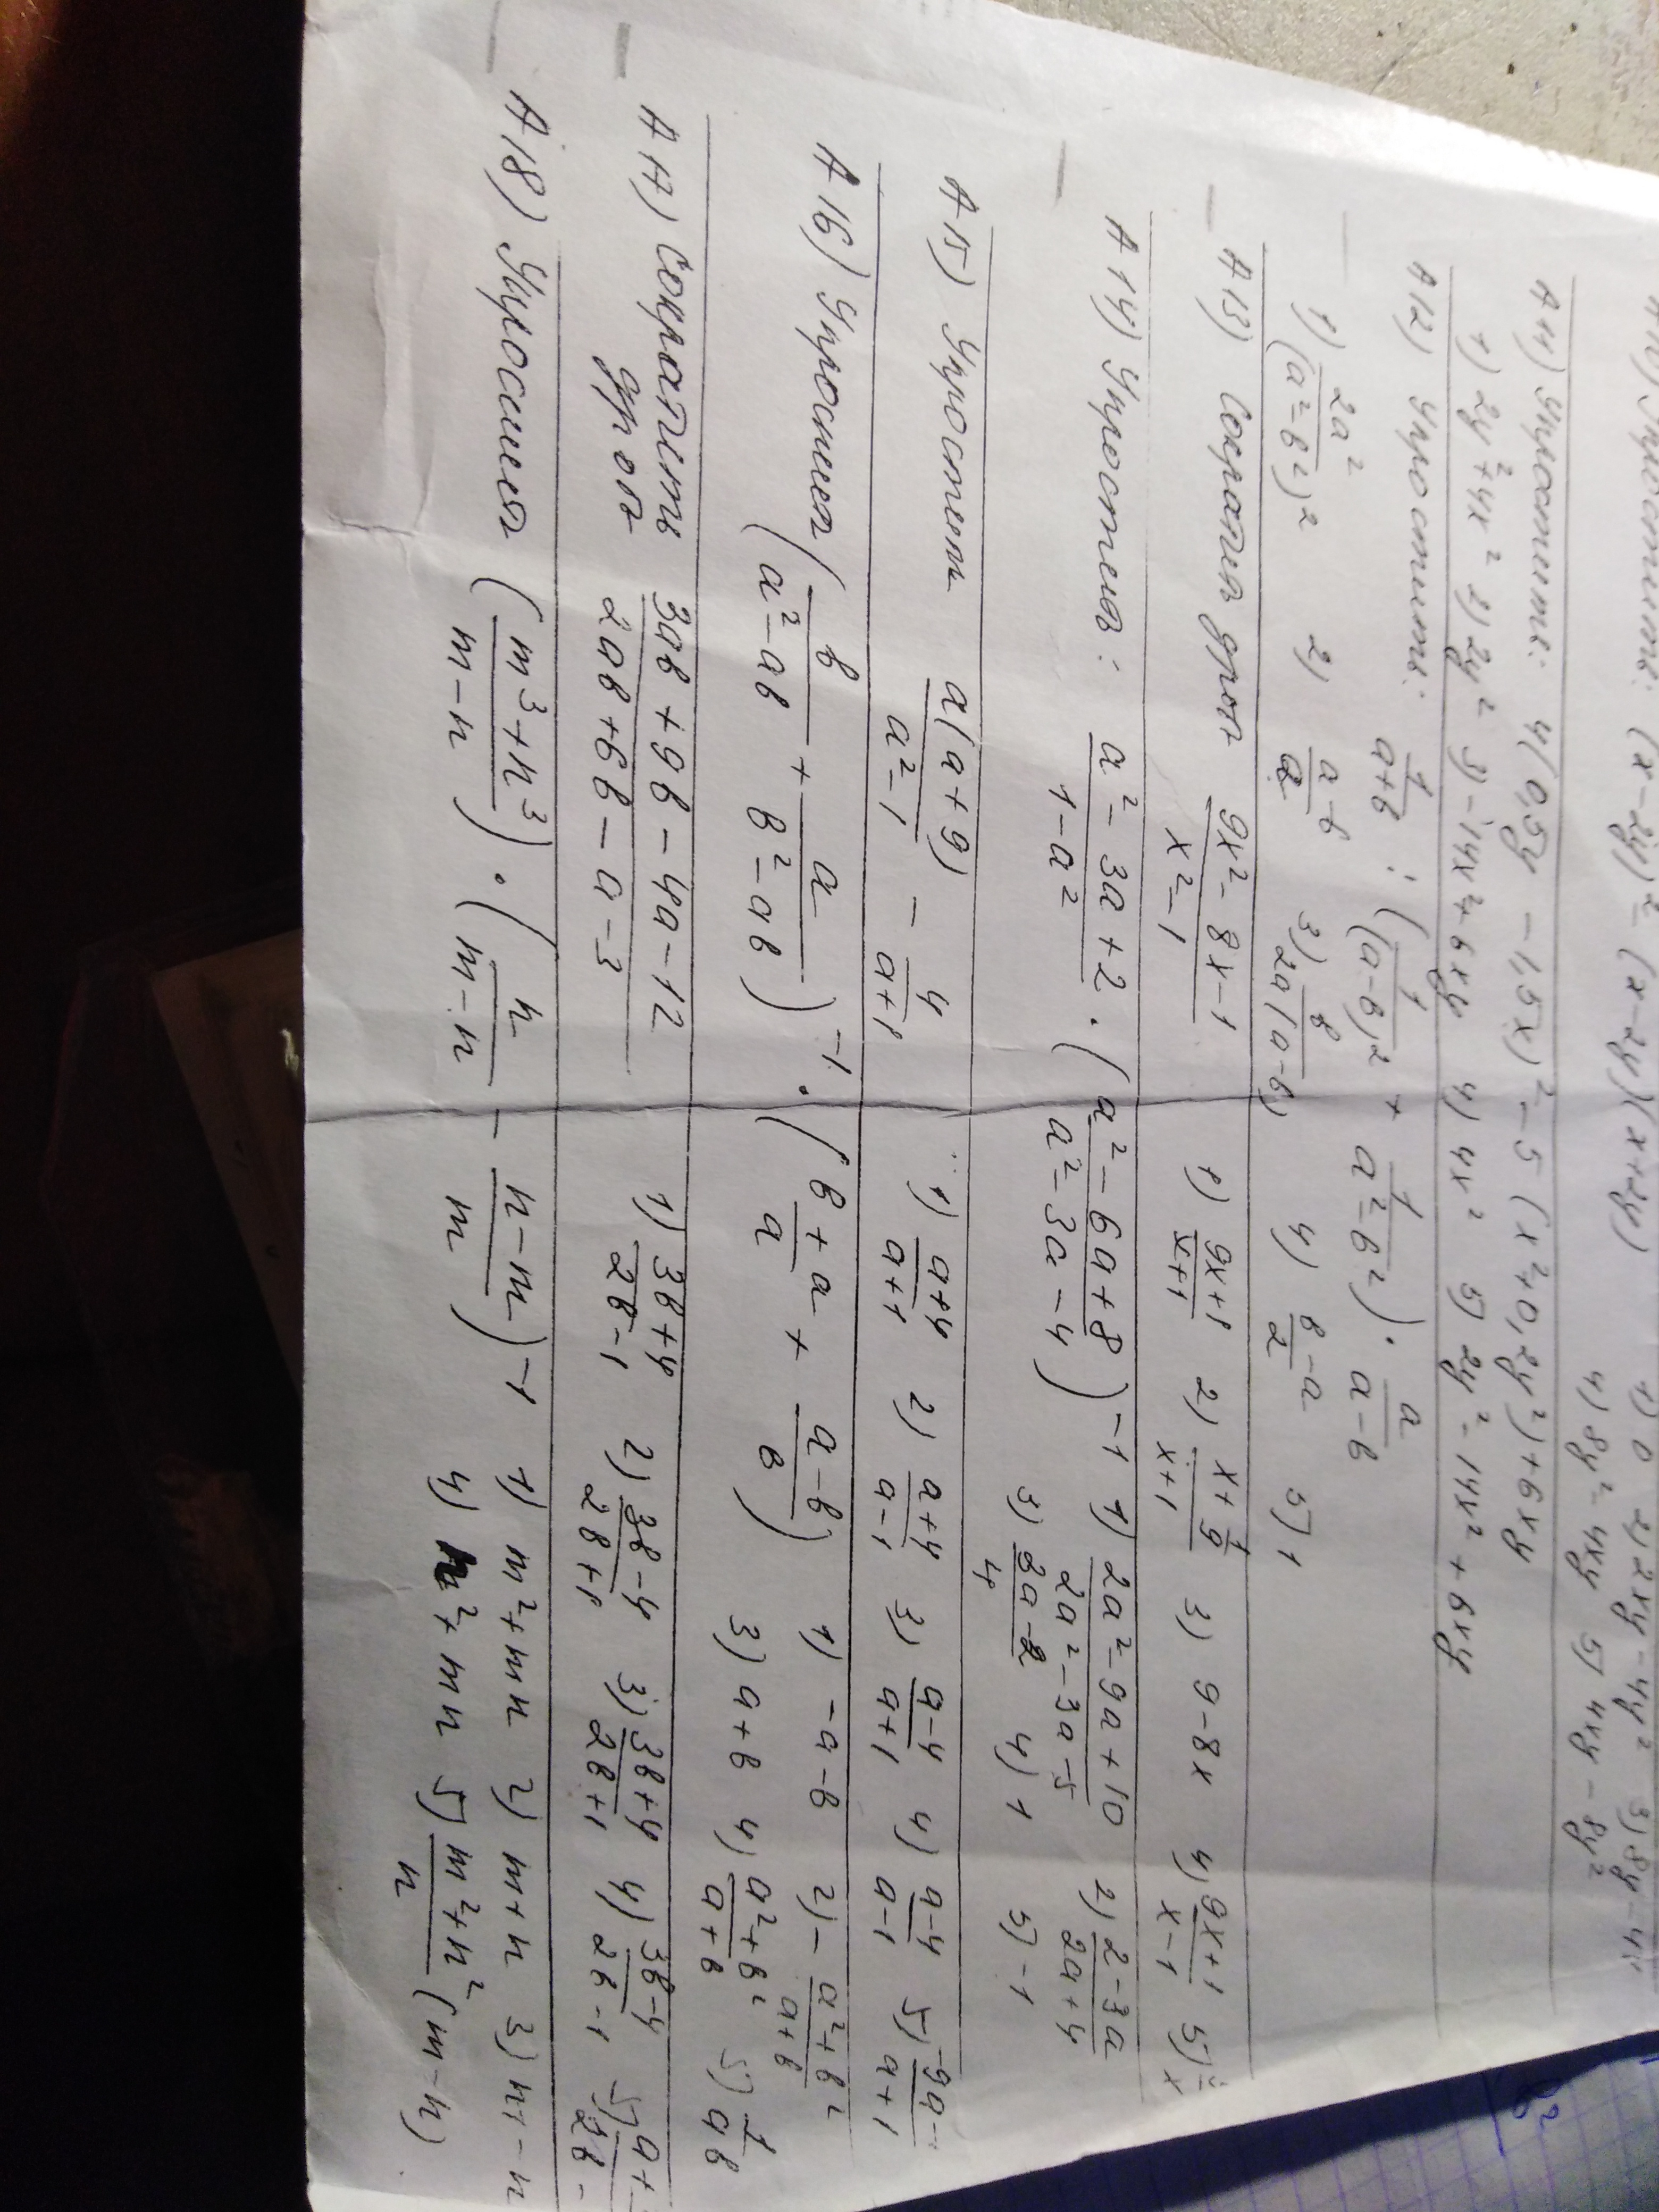 (x-2y)² - (x-2y)(x+2y)
1) 0 2) 2xy-4y² 3) 8y-4x
4) 8y²-4xy 5) 4xy-8y²
А11) Упростить: 4(0,5y - 1,5x)² - 5(x²+0,2y²)+6xy
1) 2y²+4x² 2) 2y² 3) -14x²+6xy 4) 4x² 5) 2y²-14x²+6xy
А12) Упростить: 1/(a+b) : (1/(a-b)² + 1/(a²-b²)) · a/(a-b)
1) 2a²/(a²-b²)² 2) (a-b)/2 3) b/2a(a-b) 4) (b-a)/2 5) 1
А13) Сократит дроп (9x²-8x-1)/(x²-1) 1) (9x+1)/(x+1) 2) (x+1/9)/(x+1) 3) 9-8x 4) (9x+1)/(x-1)
А14) Упростит: (a²-3a+2)/(1-a²) · ((a²-6a+8)/(a²-3a-4))⁻¹ 1) (2a²-9a+10)/(2a²-3a-5) 2) (2-3a)/(2a+4)
4) 1 5) -1
А15) Упростит a(a+9)/(a²-1) - 4/(a+1) 1) (a+4)/(a+1) 2) (a+4)/(a-1) 3) (a-4)/(a+1) 4) (a-4)/(a-1)
А16) Упростит (b/(a²-ab) + a/(b²-ab))⁻¹ · ((b+a)/a + (a-b)/b) 1) -a-b 2) -(a²+b²)/(a+b)
3) a+b 4) (a²+b²)/(a+b) 5) 1/ab
А17) Сократить (3ab+9b-4a-12)/(2ab+6b-a-3) 1) (3b+4)/(2b-1) 2) (3b-4)/(2b+1) 3) (3b+4)/(2b+1) 4) (3b-4)/(2b-1)
дроп
А18) Упростит ((m³+n³)/(m-n)) · (n/(m-n) - (n-m)/m)⁻¹ 1) m²+mn 2) m+n
4) n²+mn 5) (m²+n²)/n (m-n)